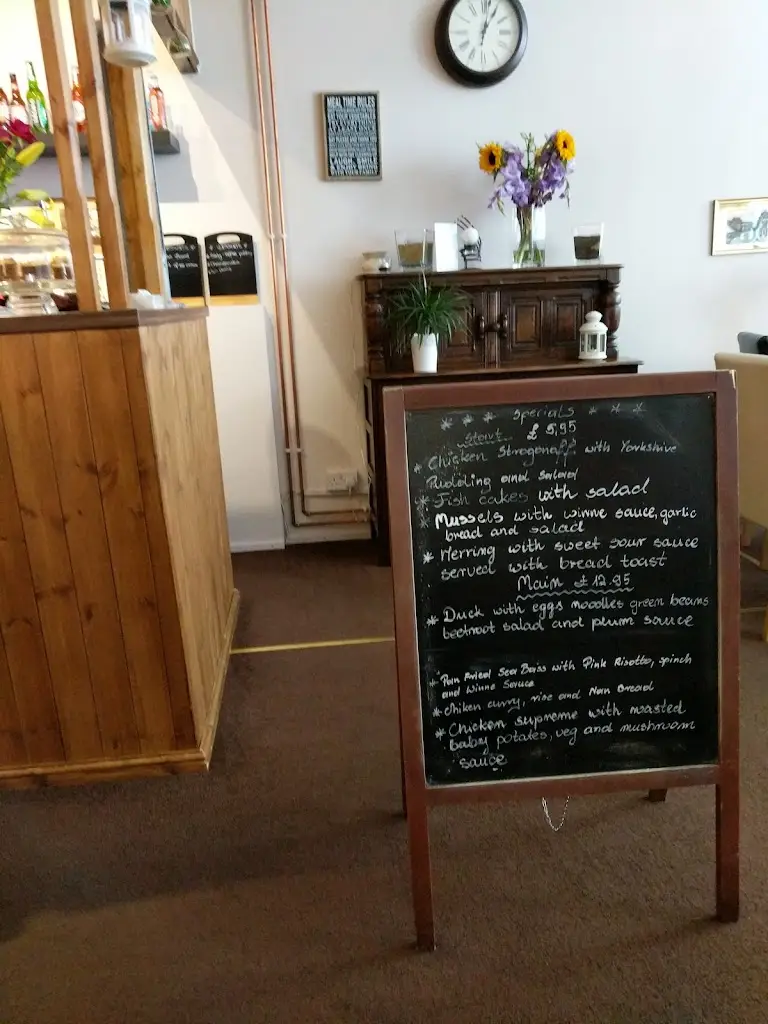 MEAL TIME RULES
* * * Specials * * *
Start £ 5,95
* Chicken Strogonoff with Yorkshire
Pudding and Salad
* Fish cakes with salad
* Mussels with winne sauce, garlic
bread and salad
* Herring with sweet sour sauce
served with bread toast
Main £ 12.95
* Duck with eggs noodles green beans
beetroot salad and plum sauce
* Pan Fried Sea Bass with Pink Risotto, spinch
and Winne Sauce
* Chiken curry, rise and Nan Bread
* Chicken supreme with roasted
baby potates, veg and mushroom
sauce